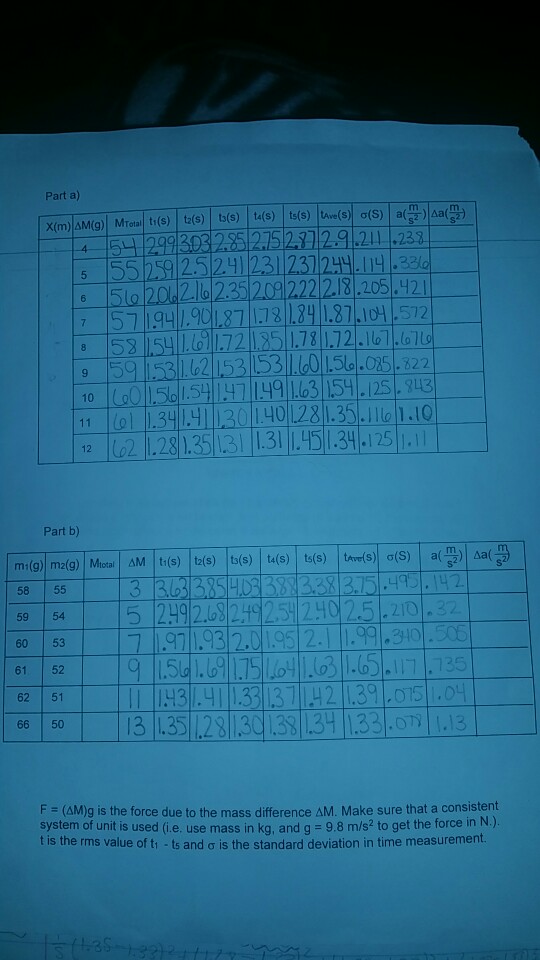 Part a)
X(m) ΔM(g) MTotal t1(s) t2(s) t3(s) t4(s) t5(s) tAve(s) σ(S) a(m/s²) Δa(m/s²)
4 54 2.99 3.03 2.85 2.75 2.87 2.9 .211 .238
5 55 2.59 2.5 2.41 2.31 2.37 2.44 .114 .336
6 56 2.06 2.16 2.35 2.09 2.22 2.18 .205 .421
7 57 1.94 1.90 1.87 1.78 1.84 1.87 .104 .572
8 58 1.54 1.69 1.72 1.85 1.78 1.72 .167 .676
9 59 1.53 1.62 1.53 1.53 1.60 1.56 .085 .822
10 60 1.56 1.54 1.47 1.49 1.63 1.54 .125 .843
11 61 1.34 1.41 1.30 1.40 1.28 1.35 .116 1.10
12 62 1.28 1.35 1.31 1.31 1.45 1.34 .125 1.11
Part b)
m1(g) m2(g) Mtotal ΔM t1(s) t2(s) t3(s) t4(s) t5(s) tAve(s) σ(S) a(m/s²) Δa(m/s²)
58 55 3 3.63 3.85 4.03 3.88 3.38 3.75 .495 .142
59 54 5 2.49 2.68 2.49 2.54 2.40 2.5 .210 .32
60 53 7 1.97 1.93 2.0 1.95 2.1 1.99 .340 .505
61 52 9 1.56 1.69 1.75 1.64 1.63 1.65 .117 .735
62 51 11 1.43 1.41 1.33 1.37 1.42 1.39 .075 1.04
66 50 13 1.35 1.28 1.30 1.38 1.34 1.33 .078 1.13
F = (ΔM)g is the force due to the mass difference ΔM. Make sure that a consistent
system of unit is used (i.e. use mass in kg, and g = 9.8 m/s² to get the force in N.).
t is the rms value of t1 - t5 and σ is the standard deviation in time measurement.